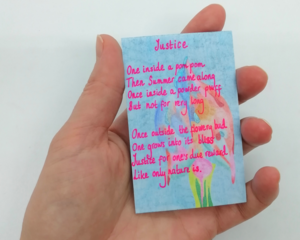 Justice
One inside a pom pom
Then Summer came along
Once inside a powder puff
But not for very long
Once outside the flowery bud
One grows into its bliss
Justice for one's due revised
Like only nature is.